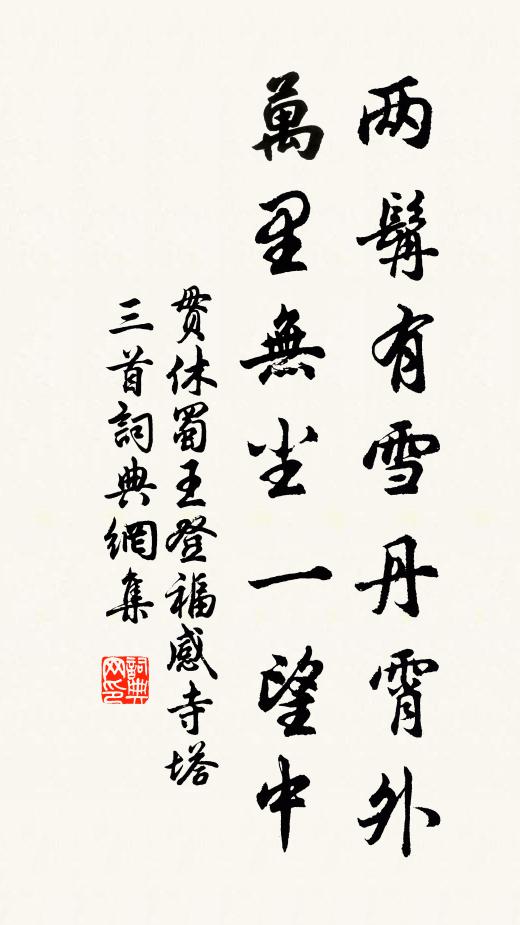 两鬢有雪丹霄外
萬里無尘一望中
贯休蜀王登福感寺塔
三首詞典網集
詞典网印